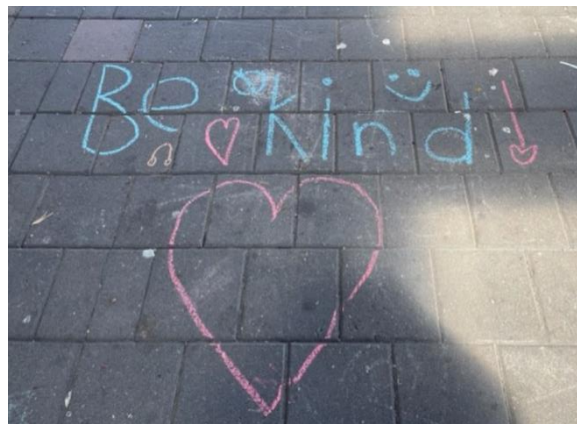 Be Kind!